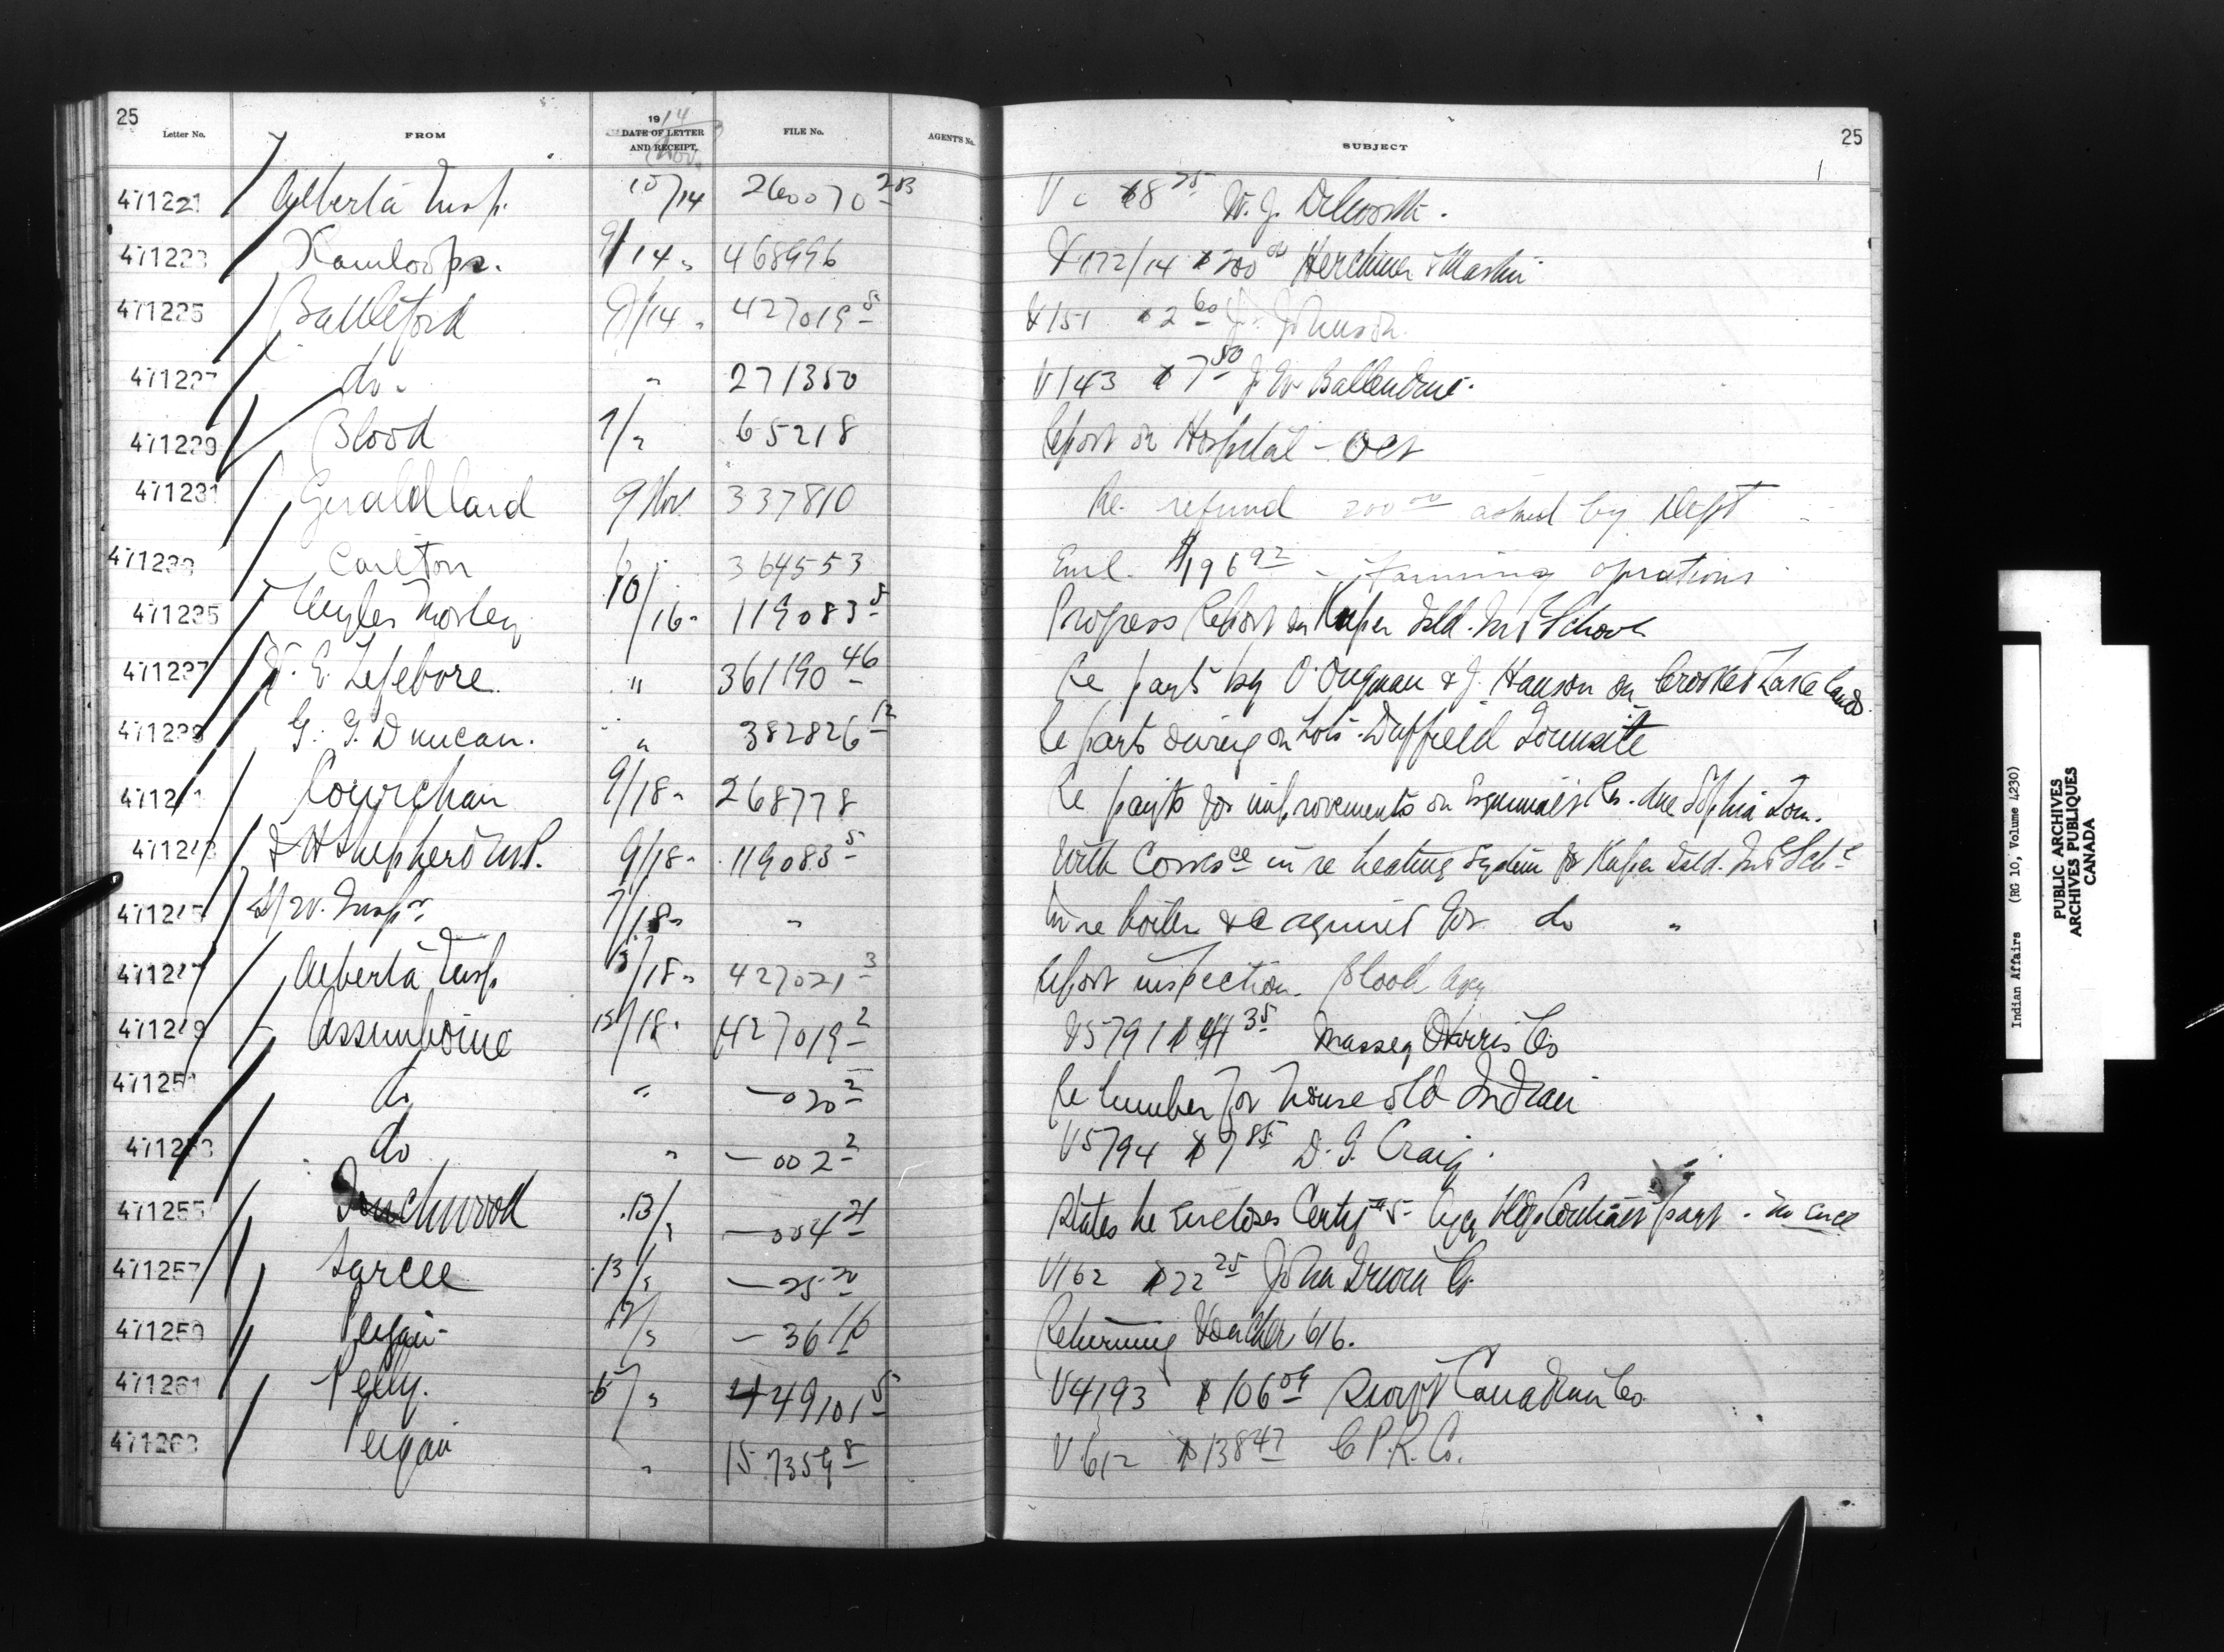 25
Letter No. FROM 1914 DATE OF LETTER AND RECEIPT, Nov. FILE No. AGENT'S No. SUBJECT 25
471221 Alberta Insp. 10/14 260070 283 V c $8 25 W. J. Dilworth.
471223 Kamloops. 9/14 " 468996 V172/14 $200 00 Herchmer & Martin
471225 Battleford 9/14 " 427019 5 V151 $2 60 J. Johnson.
471227 do. " 271350 V143 $7 50 J. W. Ballendine.
471229 Blood 7/" 65218 Report on Hospital - Oct
471231 Gerald Card 9 Nov 337810 Re. refund 200 00 asked by Dept
471233 Carlton 364553 Encl. $196 92 - farming operations
471235 10/16 " 119083 5 Progress Report on Kuper Isld. Ind School
471237 E. Lefebvre. " 361190 46 Re payt by & J. Hanson on Crooked Lake lands.
471239 G. G. Duncan. " 382826 12 Re payts on Lots. Duffield Townsite
4712 1 Cowichan 9/18 " 268778 Re payts for improvements on Esquimalt Rs. due Sophia Tom.
471243 Shepherd M.P. 9/18 " 119083 5 With Corresce in re heating system for Kuper Isld. Ind Schl
471245 S/W. Inspr. 7/18 " " In re boiler &c required for do "
471247 Alberta Insp 13/18 " 427021 3 Report inspection. Blood Agy
471249 Assiniboine 12/18 " 427019 2 V5791 $44 35 Massey Harris Co
471251 do " — 020 2 Re lumber for house old Indian
471253 do " — 002 2 V5794 $7 85 D. G. Craig.
471255 Touchwood 13/" — 004 21 States he Encloses Bldg Contract part . no encl
471257 Sarcee 13/" — 25 20 V162 $22 25 John Irwin Co.
471259 Peigan 12/" — 36 16 Returning Voucher 616.
471261 Pelly. 5/" 449101 5 V4193 $106 09 Canadian Co.
471263 Peigan " 157359 8 V612 $138 47 C.P.R. Co.
Indian Affairs (RG 10, Volume 4230)
PUBLIC ARCHIVES
ARCHIVES PUBLIQUES
CANADA